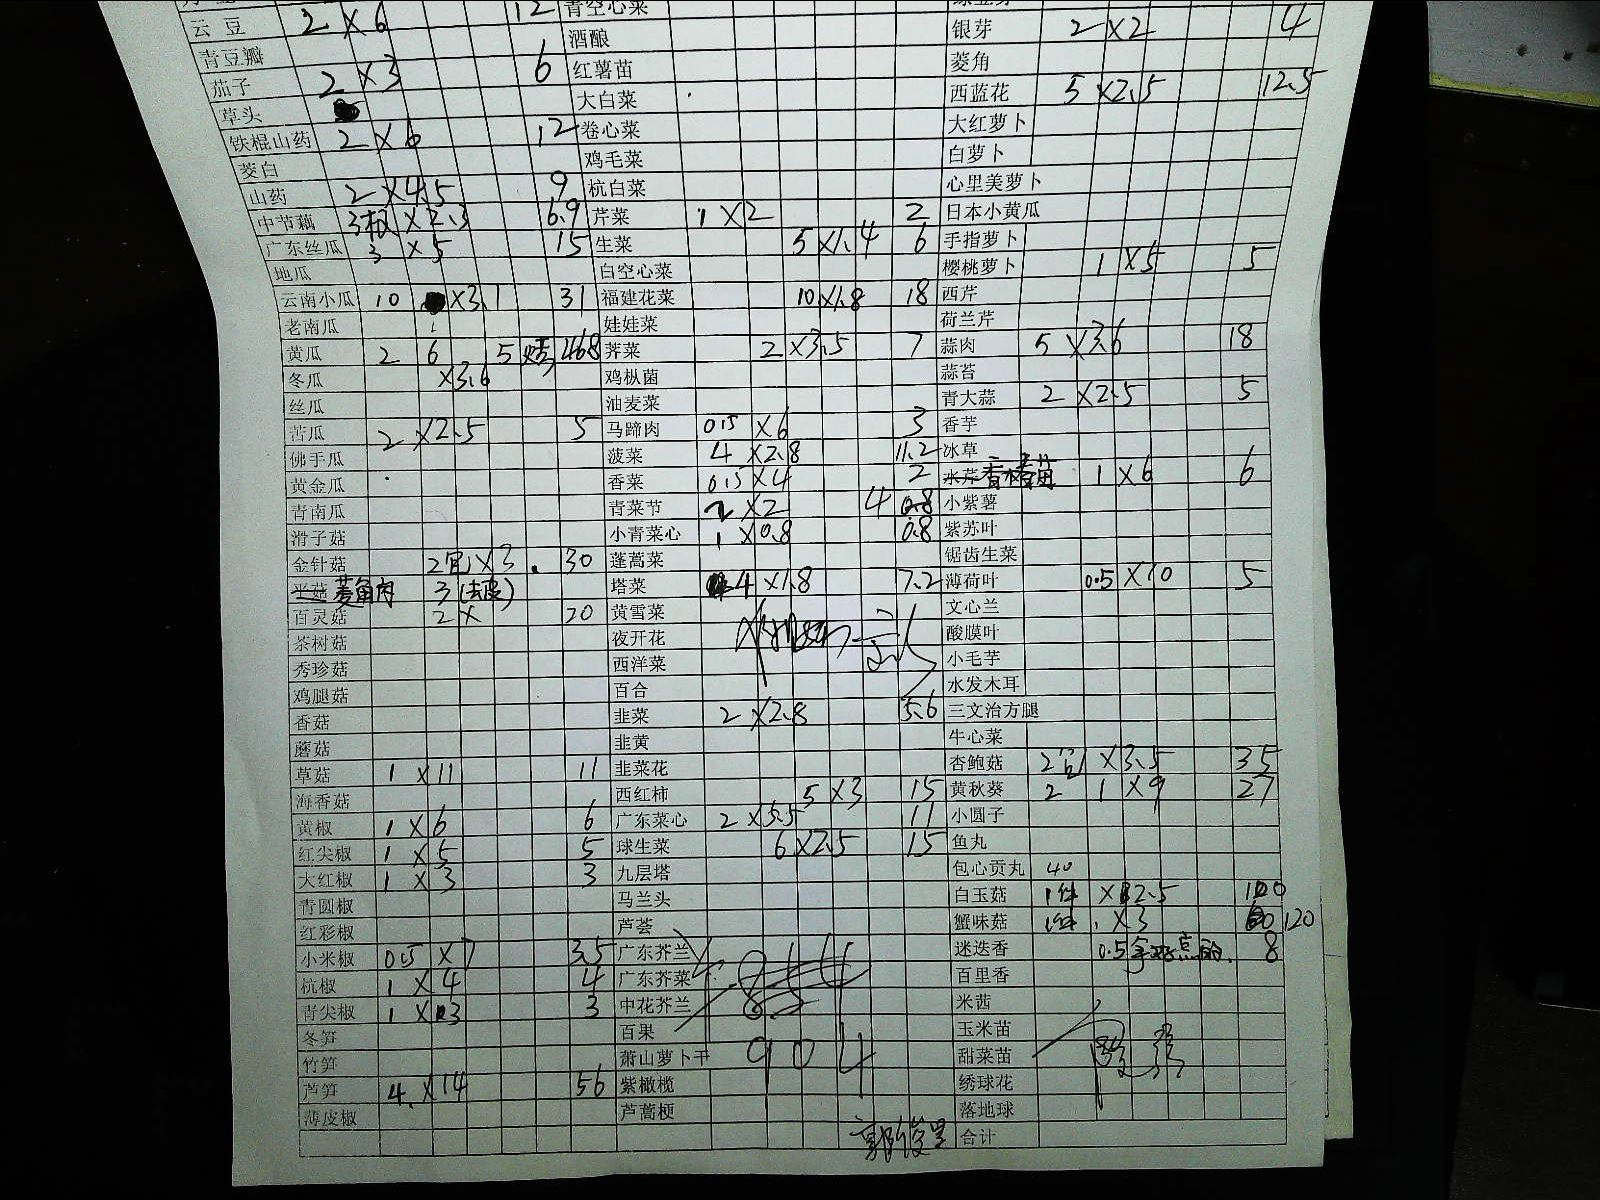 云豆 2×6 12 青空心菜 银芽 2×2 4
青豆瓣 酒酿 菱角
茄子 2×3 6 红薯苗 西蓝花 5×2.5 12.5
草头 大白菜 大红萝卜
铁棍山药 2×6 12 卷心菜 白萝卜
茭白 鸡毛菜 心里美萝卜
山药 2×4.5 9 杭白菜 日本小黄瓜
中节藕 3根×2.3 6.9 芹菜 1×2 2 手指萝卜
广东丝瓜 3×5 15 生菜 5×1.4 6 樱桃萝卜 1×5 5
地瓜 白空心菜 西芹
云南小瓜 10 ×3.1 31 福建花菜 10×1.8 18 荷兰芹
老南瓜 娃娃菜 蒜肉 5×3.6 18
黄瓜 2 6 5 荠菜 2×3.5 7 蒜苔
冬瓜 ×3.6 鸡枞菌 青大蒜 2×2.5 5
丝瓜 油麦菜 香芋
苦瓜 2×2.5 5 马蹄肉 0.5×6 3 冰草
佛手瓜 菠菜 4×2.8 11.2 水芹 香椿苗 1×6 6
黄金瓜 香菜 0.5×4 2 小紫薯
青南瓜 青菜节 2×2 4 紫苏叶
滑子菇 小青菜心 1×0.8 0.8 锯齿生菜
金针菇 2包×3 30 蓬蒿菜 薄荷叶 0.5×10 5
平菇 菱角肉 3(去皮) 塔菜 4×1.8 7.2 文心兰
百灵菇 2× 20 黄雪菜 酸膜叶
茶树菇 夜开花 小毛芋
秀珍菇 西洋菜 水发木耳
鸡腿菇 百合 三文治方腿
香菇 韭菜 2×2.8 5.6 牛心菜
蘑菇 韭黄 杏鲍菇 2包×3.5 35
草菇 1×11 11 韭菜花 黄秋葵 2 1×9 27
海香菇 西红柿 5×3 15 小圆子
黄椒 1×6 6 广东菜心 2×5.5 11 鱼丸
红尖椒 1×5 5 球生菜 6×2.5 15 包心贡丸 40
大红椒 1×3 3 九层塔 白玉菇 1件×2.5 100
青圆椒 马兰头 蟹味菇 1件×3 120
红彩椒 芦荟 迷迭香 0.5 8
小米椒 0.5×7 3.5 广东芥兰 百里香
杭椒 1×4 4 广东芥菜 米茜
青尖椒 1×3 3 中花芥兰 玉米苗
冬笋 百果 甜菜苗
竹笋 萧山萝卜干 904 绣球花
芦笋 4×14 56 紫橄榄 落地球
薄皮椒 芦蒿梗 合计